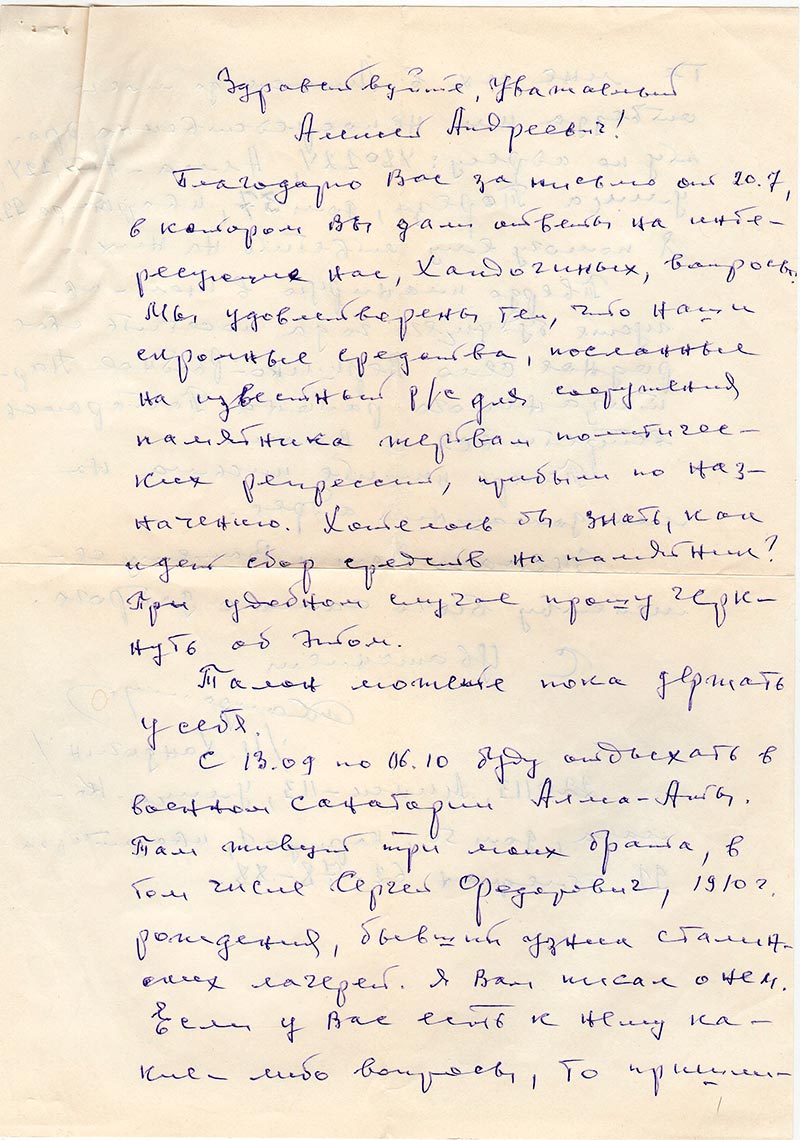 Здравствуйте, Уважаемый
Алексей Андреевич!
Благодарю Вас за письмо от 20.7,
в котором Вы дали ответы на инте-
ресующие нас, Хандогиных, вопросы.
Мы удовлетворены тем, что наши
скромные средства, посланные
на известный р/с для сооружения
памятника жертвам политичес-
ких репрессий, прибыли по наз-
начению. Хотелось бы знать, как
идет сбор средств на памятник?
При удобном случае прошу черк-
нуть об этом.
Талон можете пока держать
у себя.
С 13.09 по 06.10 буду отдыхать в
военном санатории Алма-Аты.
Там живут три моих брата, в
том числе Сергей Федорович, 1910 г.
рождения, бывший узник сталин-
ских лагерей. Я Вам писал о нем.
Если у Вас есть к нему ка-
кие-либо вопросы, то пришли-